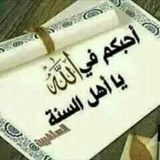 أحبكم في الله
يا أهل السنة